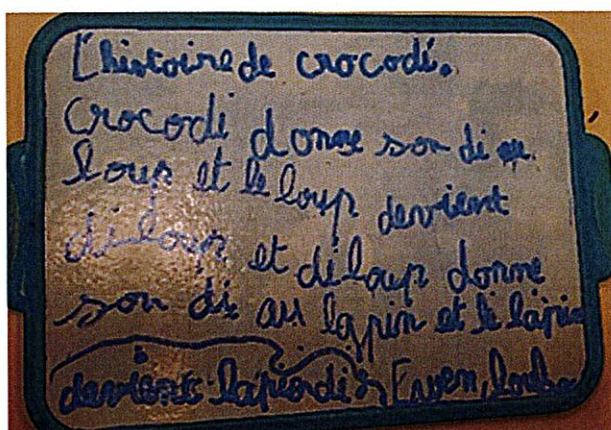 L'histoire de crocodi.
Crocodi donne son di au
loup et le loup devient
diloup et diloup donne
son di au lapin et le lapin
devient lapindi